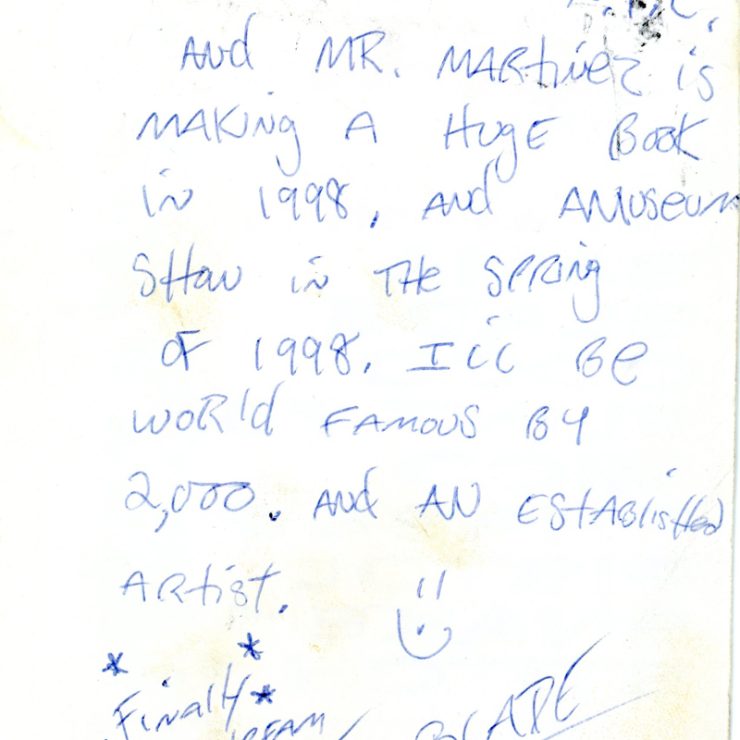 And MR. MARtinez is
MAKing A HugE Book
in 1998, And AMuseum
SHow in THe SPRing
of 1998. I'll Be
WORld FAMOUS BY
2,000. And AN EStABlisHed
ARtist.
Finally
BLADE